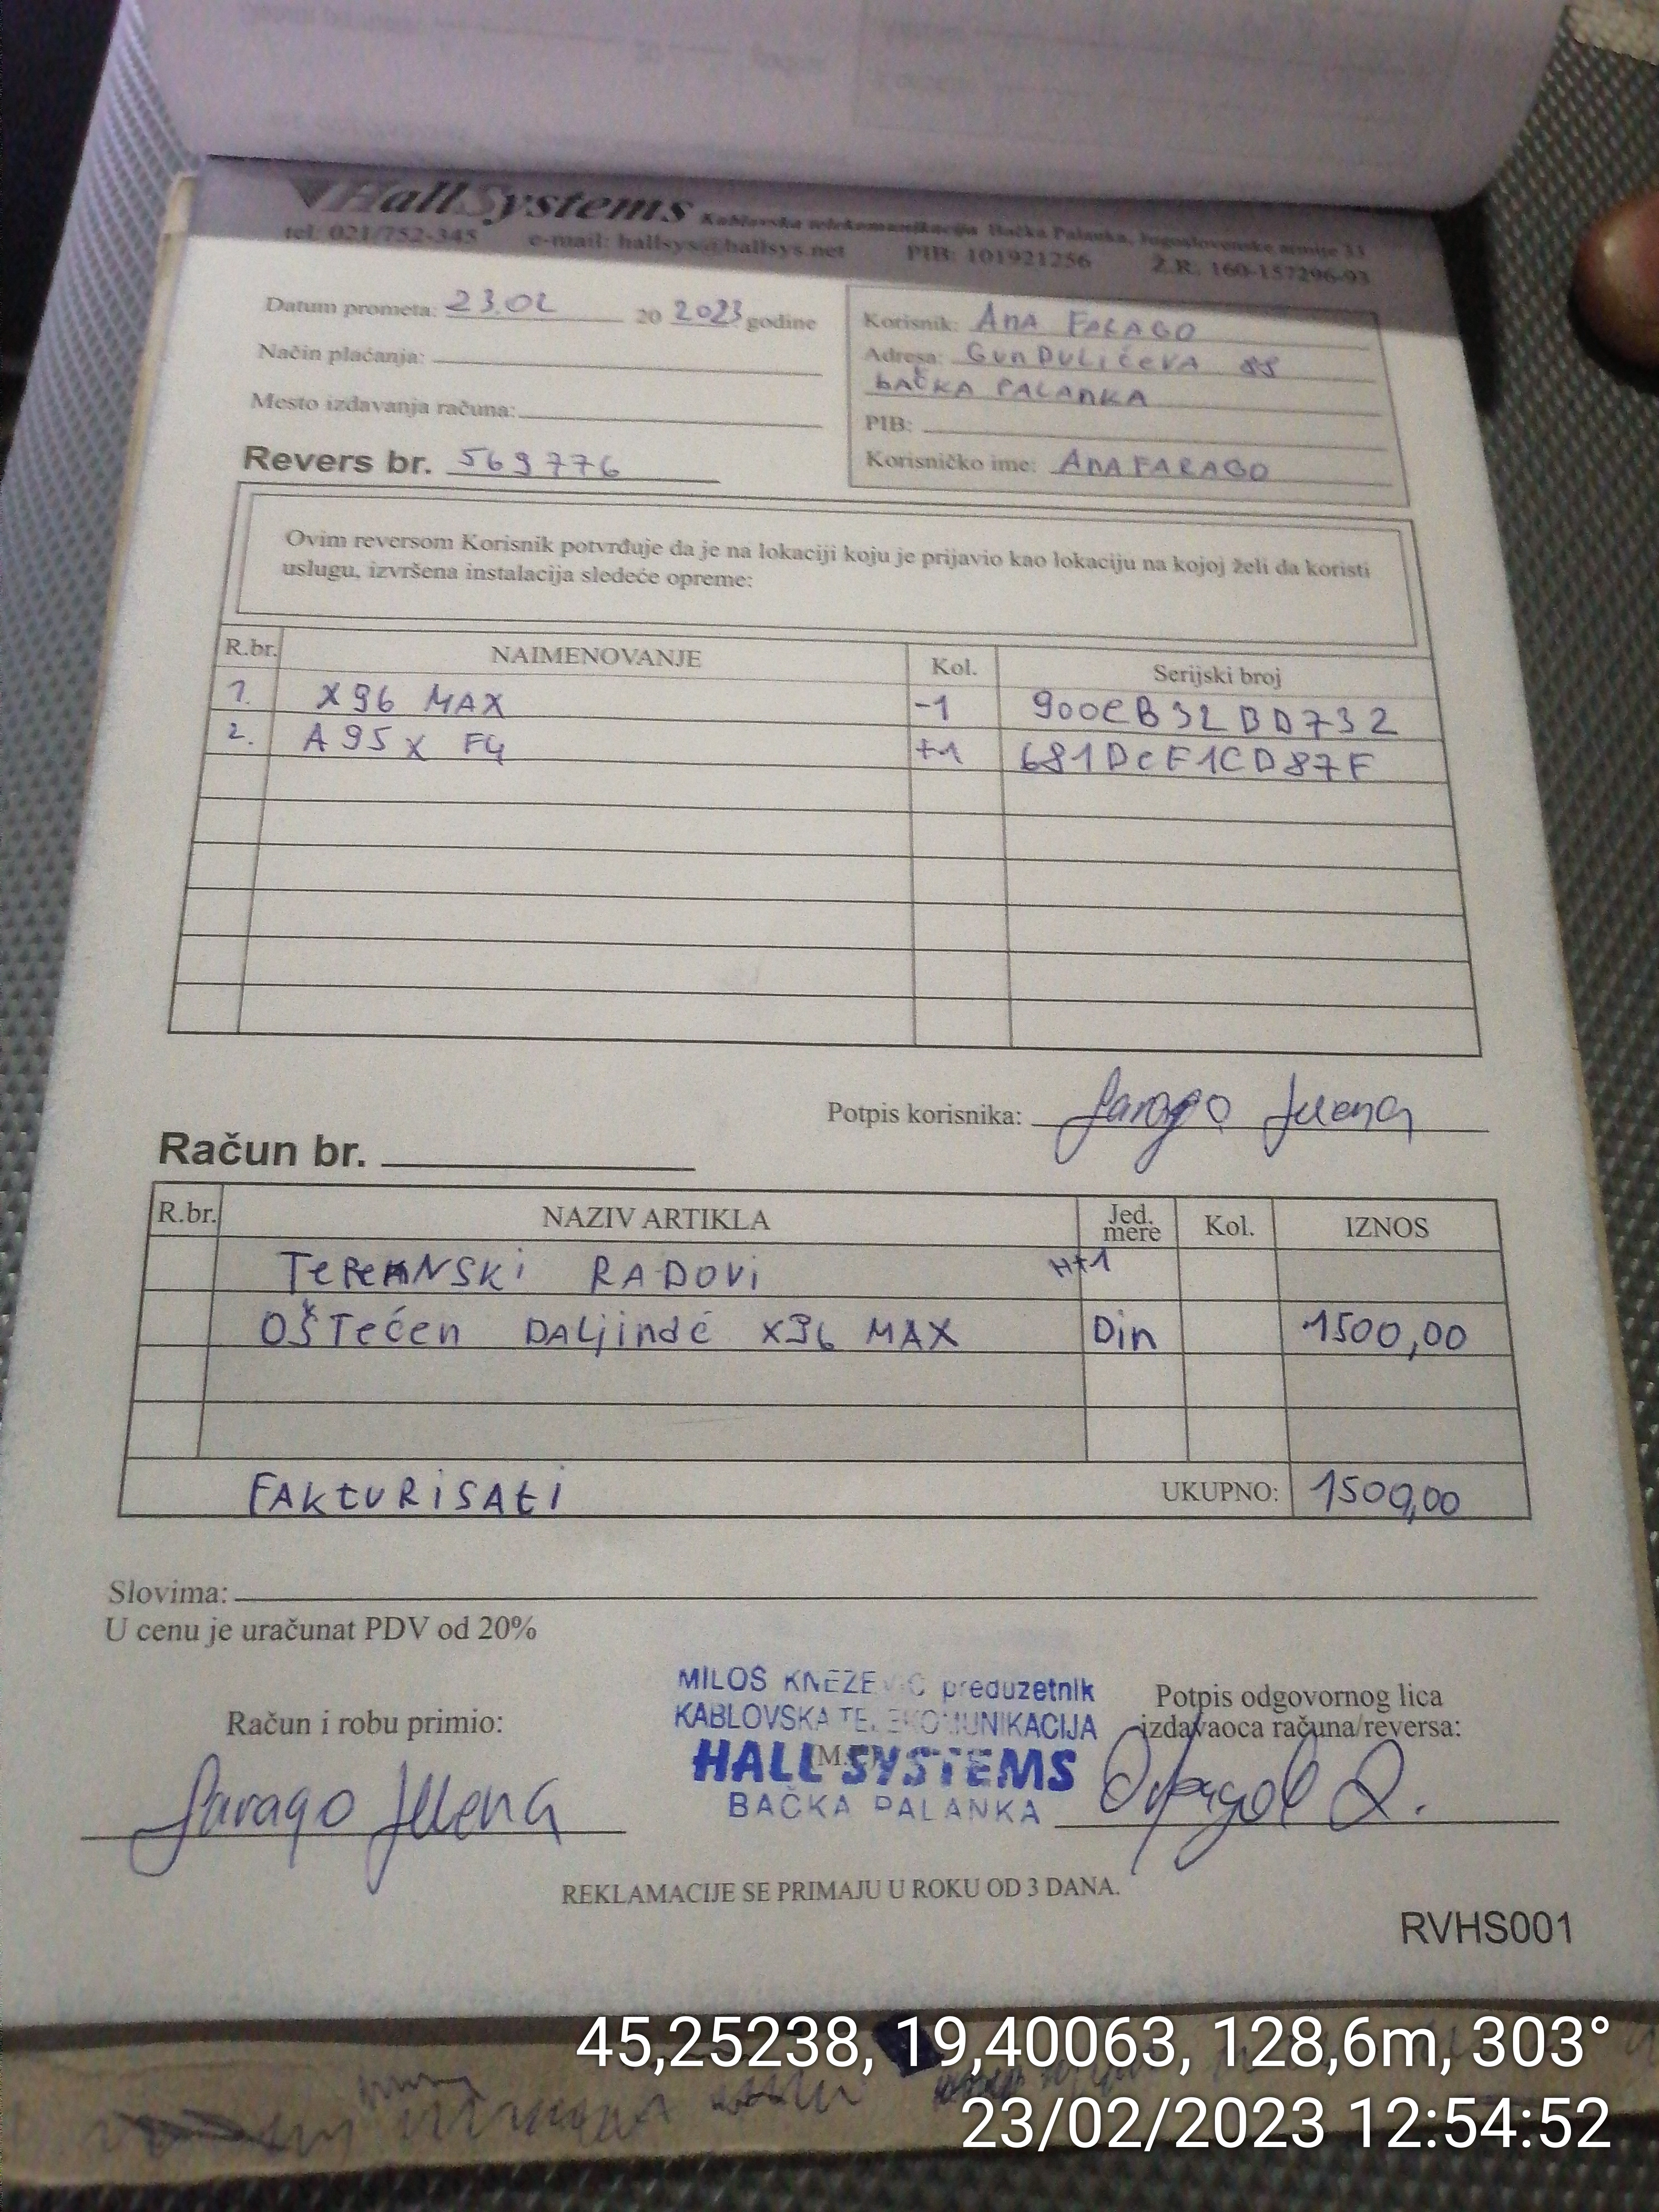 HallSystems Kablovska telekomunikacija Bačka Palanka, Jugoslovenske armije 33
tel: 021/752-345 e-mail: hallsys@hallsys.net PIB: 101921256 Ž.R. 160-157296-93
Datum prometa: 23.02 20 2023 godine
Način plaćanja:
Mesto izdavanja računa:
Revers br. 569776
Korisnik: ANA FARAGO
Adresa: GUNDULIĆEVA 88
BAČKA PALANKA
PIB:
Korisničko ime: ANAFARAGO
Ovim reversom Korisnik potvrđuje da je na lokaciji koju je prijavio kao lokaciju na kojoj želi da koristi
uslugu, izvršena instalacija sledeće opreme:
R.br. NAIMENOVANJE Kol. Serijski broj
1. X96 MAX -1 900EB32BD732
2. A95X F4 +1 681DCF1CD87F
Potpis korisnika: Farago Jelena
Račun br.
R.br. NAZIV ARTIKLA Jed. mere Kol. IZNOS
TERENSKI RADOVI H+1
OŠTEĆEN DALJINAC X96 MAX Din 1500,00
FAKTURISATI UKUPNO: 1500,00
Slovima:
U cenu je uračunat PDV od 20%
Račun i robu primio:
Farago Jelena
MILOŠ KNEŽEVIĆ preduzetnik
KABLOVSKA TELEKOMUNIKACIJA
HALL SYSTEMS
BAČKA PALANKA
Potpis odgovornog lica
izdavaoca računa/reversa:
REKLAMACIJE SE PRIMAJU U ROKU OD 3 DANA.
RVHS001
45,25238, 19,40063, 128,6m, 303°
23/02/2023 12:54:52